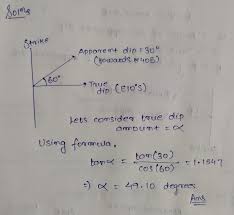 Solns
Strike
Apparent dip = 30°
(towards N40E)
60°
True
dip (E10°S)
Lets consider true dip
amount = α
Using formula,
tanα = tan(30) / cos(60) = 1.1547
⇒ α = 49.10 degrees
Ans